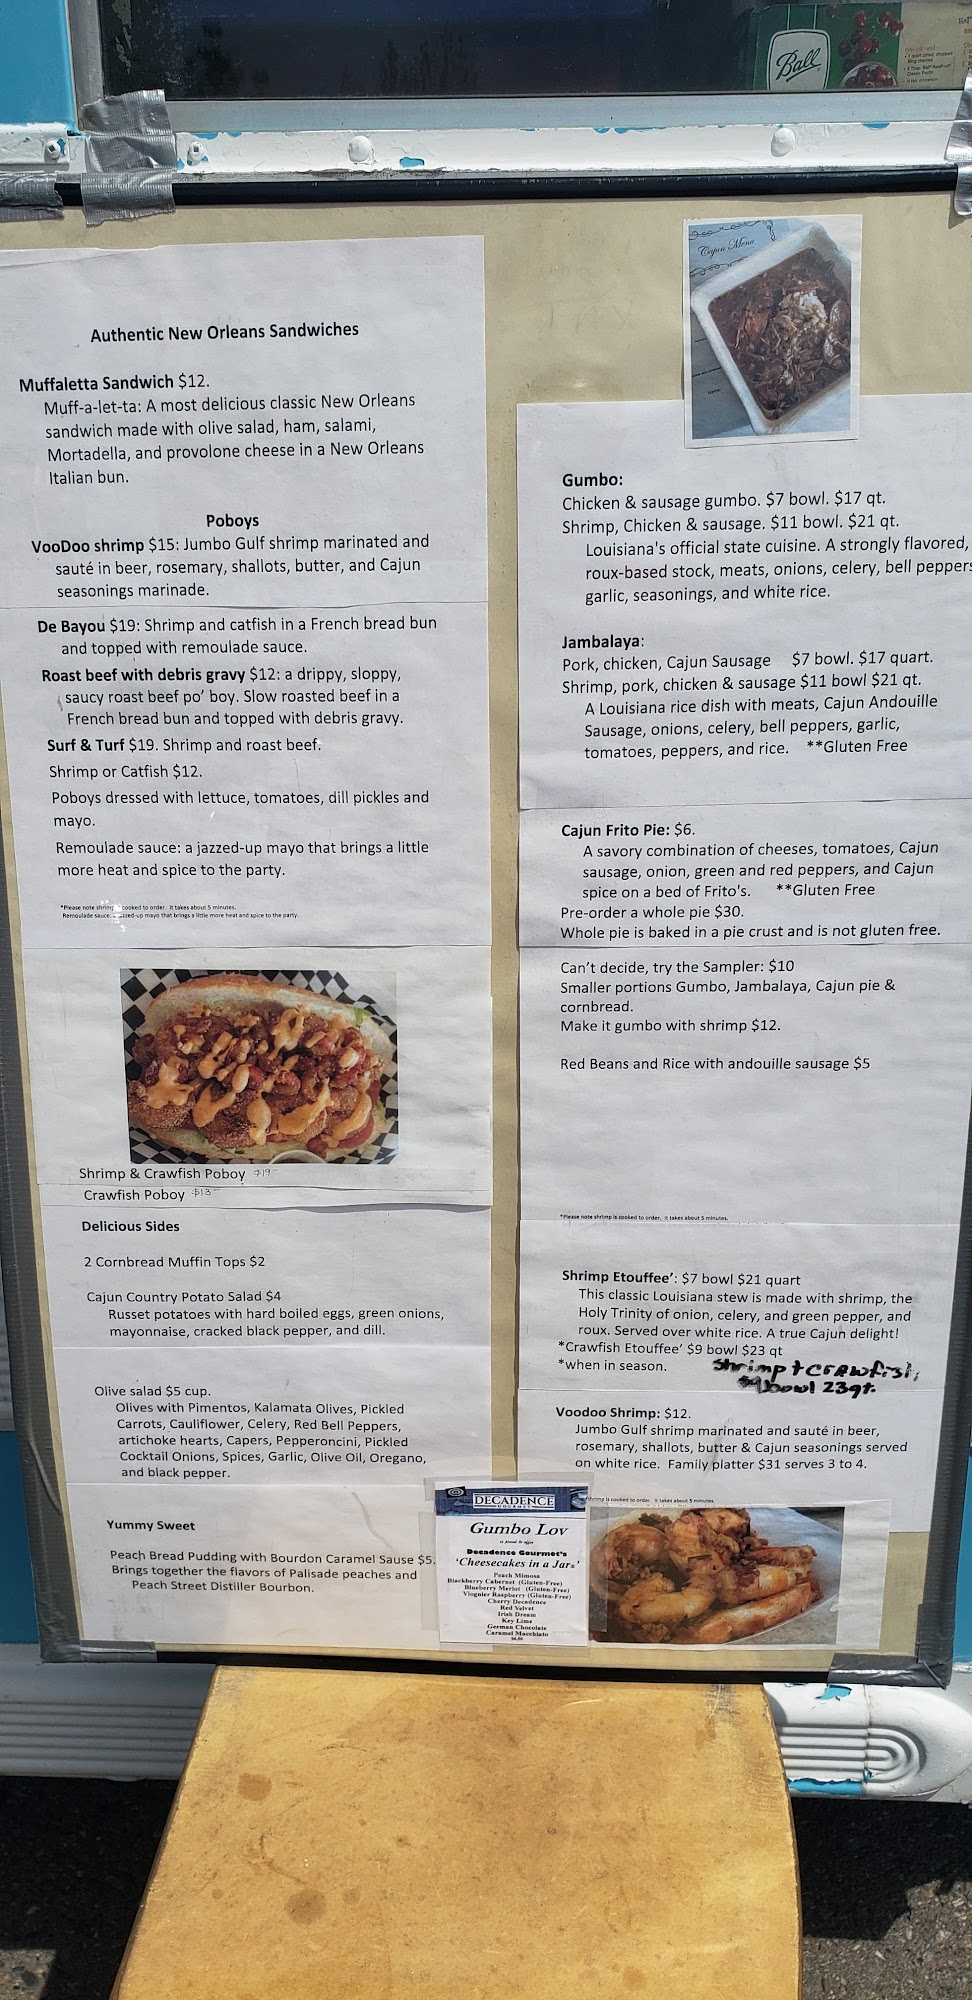 Ball
Cajun Menu
Authentic New Orleans Sandwiches
Muffaletta Sandwich $12.
Muff-a-let-ta: A most delicious classic New Orleans
sandwich made with olive salad, ham, salami,
Mortadella, and provolone cheese in a New Orleans
Italian bun.
Poboys
VooDoo shrimp $15: Jumbo Gulf shrimp marinated and
sauté in beer, rosemary, shallots, butter, and Cajun
seasonings marinade.
De Bayou $19: Shrimp and catfish in a French bread bun
and topped with remoulade sauce.
Roast beef with debris gravy $12: a drippy, sloppy,
saucy roast beef po' boy. Slow roasted beef in a
French bread bun and topped with debris gravy.
Surf & Turf $19. Shrimp and roast beef.
Shrimp or Catfish $12.
Poboys dressed with lettuce, tomatoes, dill pickles and
mayo.
Remoulade sauce: a jazzed-up mayo that brings a little
more heat and spice to the party.
*Please note shrimp cooked to order. It takes about 5 minutes.
Remoulade sauce: jazzed-up mayo that brings a little more heat and spice to the party.
Shrimp & Crawfish Poboy $19
Crawfish Poboy $13
Delicious Sides
2 Cornbread Muffin Tops $2
Cajun Country Potato Salad $4
Russet potatoes with hard boiled eggs, green onions,
mayonnaise, cracked black pepper, and dill.
Olive salad $5 cup.
Olives with Pimentos, Kalamata Olives, Pickled
Carrots, Cauliflower, Celery, Red Bell Peppers,
artichoke hearts, Capers, Pepperoncini, Pickled
Cocktail Onions, Spices, Garlic, Olive Oil, Oregano,
and black pepper.
Yummy Sweet
Peach Bread Pudding with Bourdon Caramel Sause $5.
Brings together the flavors of Palisade peaches and
Peach Street Distiller Bourbon.
Gumbo:
Chicken & sausage gumbo. $7 bowl. $17 qt.
Shrimp, Chicken & sausage. $11 bowl. $21 qt.
Louisiana's official state cuisine. A strongly flavored,
roux-based stock, meats, onions, celery, bell peppers
garlic, seasonings, and white rice.
Jambalaya:
Pork, chicken, Cajun Sausage $7 bowl. $17 quart.
Shrimp, pork, chicken & sausage $11 bowl $21 qt.
A Louisiana rice dish with meats, Cajun Andouille
Sausage, onions, celery, bell peppers, garlic,
tomatoes, peppers, and rice. **Gluten Free
Cajun Frito Pie: $6.
A savory combination of cheeses, tomatoes, Cajun
sausage, onion, green and red peppers, and Cajun
spice on a bed of Frito's. **Gluten Free
Pre-order a whole pie $30.
Whole pie is baked in a pie crust and is not gluten free.
Can't decide, try the Sampler: $10
Smaller portions Gumbo, Jambalaya, Cajun pie &
cornbread.
Make it gumbo with shrimp $12.
Red Beans and Rice with andouille sausage $5
*Please note shrimp is cooked to order. It takes about 5 minutes.
Shrimp Etouffee': $7 bowl $21 quart
This classic Louisiana stew is made with shrimp, the
Holy Trinity of onion, celery, and green pepper, and
roux. Served over white rice. A true Cajun delight!
*Crawfish Etouffee' $9 bowl $23 qt
*when in season.
Shrimp + Crawfish
$9 bowl 23qt.
Voodoo Shrimp: $12.
Jumbo Gulf shrimp marinated and sauté in beer,
rosemary, shallots, butter & Cajun seasonings served
on white rice. Family platter $31 serves 3 to 4.
shrimp is cooked to order. It takes about 5 minutes.
DECADENCE
GOURMET
Gumbo Lov
is proud to offer
Decadence Gourmet's
'Cheesecakes in a Jar.'
Peach Mimosa
Blackberry Cabernet (Gluten-Free)
Blueberry Merlot (Gluten-Free)
Viognier Raspberry (Gluten-Free)
Cherry Decadence
Red Velvet
Irish Dream
Key Lime
German Chocolate
Caramel Macchiato